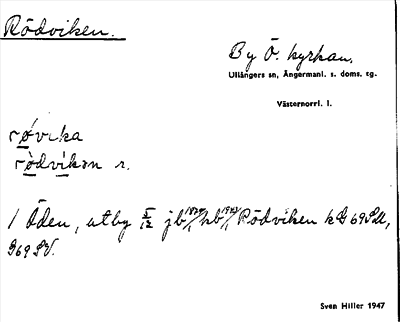 Rödviken.
By Ö. kyrkan.
Ullångers sn, Ångermanl. s. doms. tg.
Västernorrl. l.
røvika
rödvikan r.
1 Öden, utby 5/12 jb 1/1 kb 1/1 Rödviken kB 69
969 SV.
Sven Hiller 1947